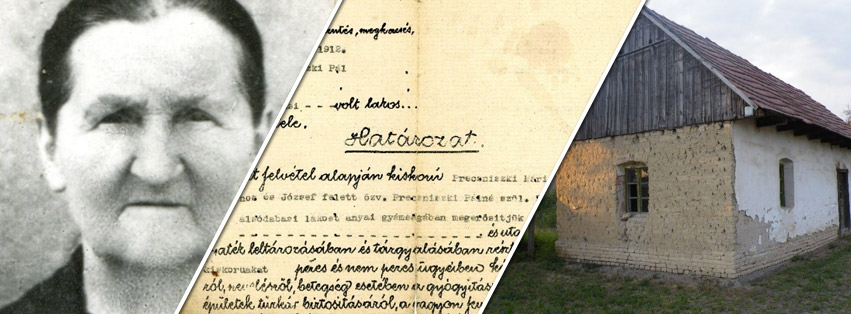 megkeresés,
1912.
ski Pál
volt lakos...
Határozat.
t felvétel alapján kiskorú Precaniszki Mári
nos és József felett özv. Precaniszki Pálné szül.
alsódabasi lakost anyai gyámságában megerősitjük
és uto
yaték leltározásában és tárgyalásában rész
kiskoruakat peres és nem peres ügyeiben ké
ról, neveléséről, betegség esetében a gyógyitás
épületek tüzkár biztositásáról, a vagyon